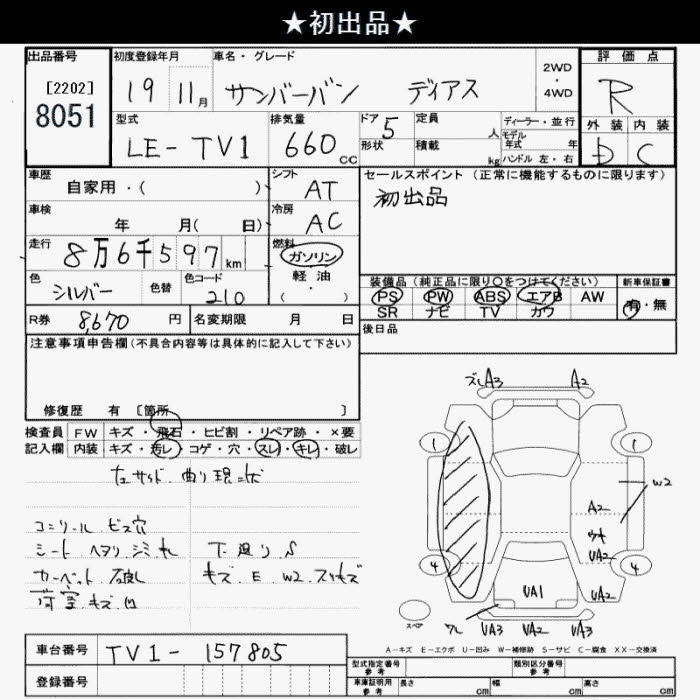 ★初出品★
出品番号 初度登録年月 車名・グレード 2WD・4WD 評価点
[2202] 8051 19 11月 サンバーバン ディアス R
型式 排気量 ドア 定員 人 ディーラー・並行 外装 内装
LE-TV1 660 cc 5 モデル年式 年 D C
形状 積載 kg ハンドル 左・右
車歴 シフト セールスポイント (正常に機能するものに限ります)
自家用・( ) AT 初出品
車検 冷房
年 月( 日) AC
走行 燃料
8万6千597km ガソリン
色 色替 色コード 軽油
シルバー 210 ・( )
装備品 (純正品に限り○をつけてください) 新車保証書
PS PW ABS エアB AW 有・無
SR ナビ TV カワ
R券 8,670 円 名変期限 月 日 後日品
注意事項申告欄(不具合内容等は具体的に記入して下さい)
修復歴 有 [箇所 ]
検査員 FW キズ・飛石・ヒビ割・リペア跡・×要
記入欄 内装 キズ・汚レ・コゲ・穴・スレ・キレ・破レ
曲り
ビス穴
シート ヘタリ シミ 下廻り S
カーペット キズ E W2 スリキズ
荷室 キズ 凹
A3 A2
1 1
W2
A2
UA2
4 4
UA1 UA2
スペア UA3 UA2 UA3
A-キズ E-エクボ U-凹み W-補修跡 S-サビ C-腐食 XX-交換済
車台番号 TV1-157805 型式指定番号 参考 類別区分番号 参考
登録番号 車庫証明用 参考 長さ cm 幅 cm 高さ cm